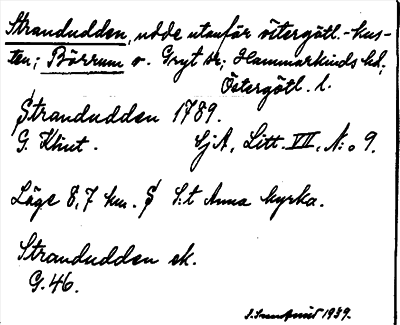 Strandudden, udde utanför östergötl.-kus-
ten; Börrum o. Gryt sn; Hammarkinds hd,
Östergötl. l.
Strandudden 1789.
G. Klint. SjA, Litt. VII, N:o 9.
Läge 8,7 km. S S:t Anna kyrka.
Strandudden ek.
G.46.
1939.